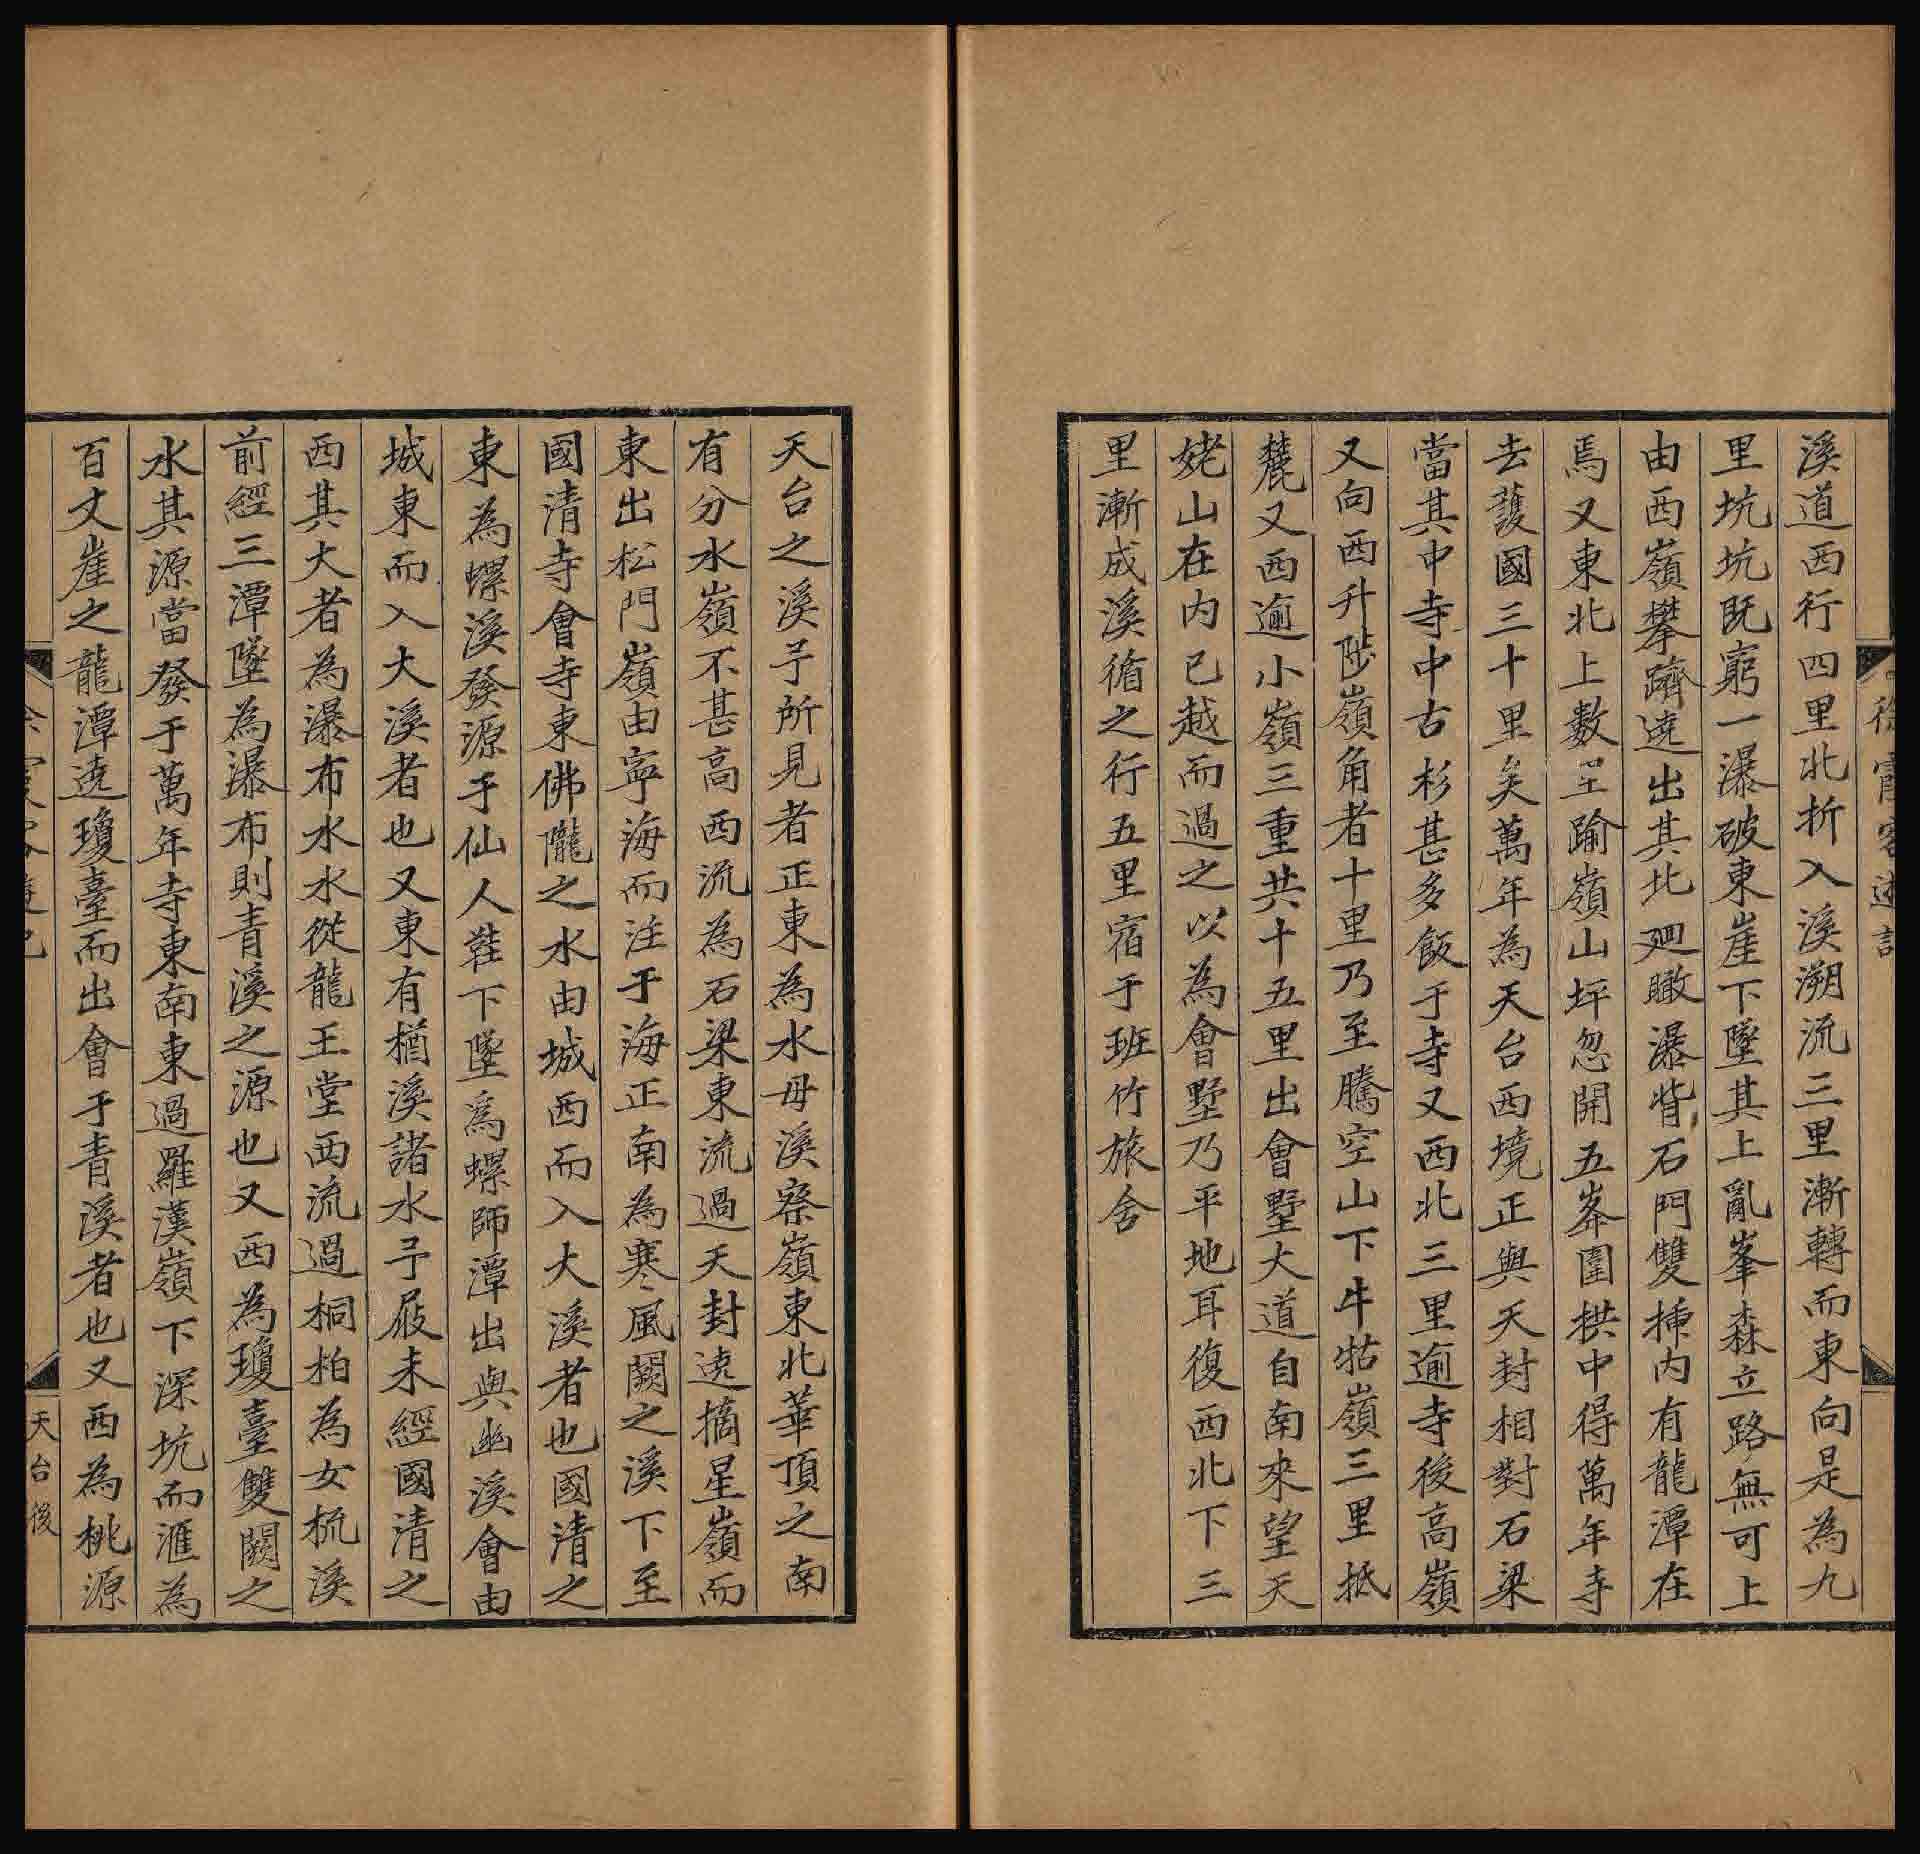 溪道西行四里北折入溪溯流三里漸轉而東向是為九
里坑坑既窮一瀑破東崖下墜其上亂峯森立路無可上
由西嶺攀躋遶出其北廻瞰瀑背石門雙揷内有龍潭在
焉又東北上數里踰嶺山坪忽開五峯圍拱中得萬年寺
去護國三十里矣萬年為天台西境正與天封相對石梁
當其中寺中古杉甚多飯于寺又西北三里逾寺後高嶺
又向西升陟嶺角者十里乃至騰空山下牛牯嶺三里抵
麓又西逾小嶺三重共十五里出會墅大道自南來望天
姥山在内已越而過之以為會墅乃平地耳復西北下三
里漸成溪循之行五里宿于班竹旅舍
天台之溪予所見者正東為水母溪察嶺東北華頂之南
有分水嶺不甚高西流為石梁東流過天封遶摘星嶺而
東出松門嶺由寧海而注于海正南為寒風闕之溪下至
國清寺會寺東佛隴之水由城西而入大溪者也國清之
東為螺溪發源于仙人鞋下墜為螺師潭出與幽溪會由
城東而入大溪者也又東有楢溪諸水予屐未經國清之
西其大者為瀑布水水從龍王堂西流過桐柏為女梳溪
前經三潭墜為瀑布則青溪之源也又西為瓊臺雙闕之
水其源當發于萬年寺東南東過羅漢嶺下深坑而滙為
百丈崖之龍潭遶瓊臺而出會于青溪者也又西為桃源
天台後